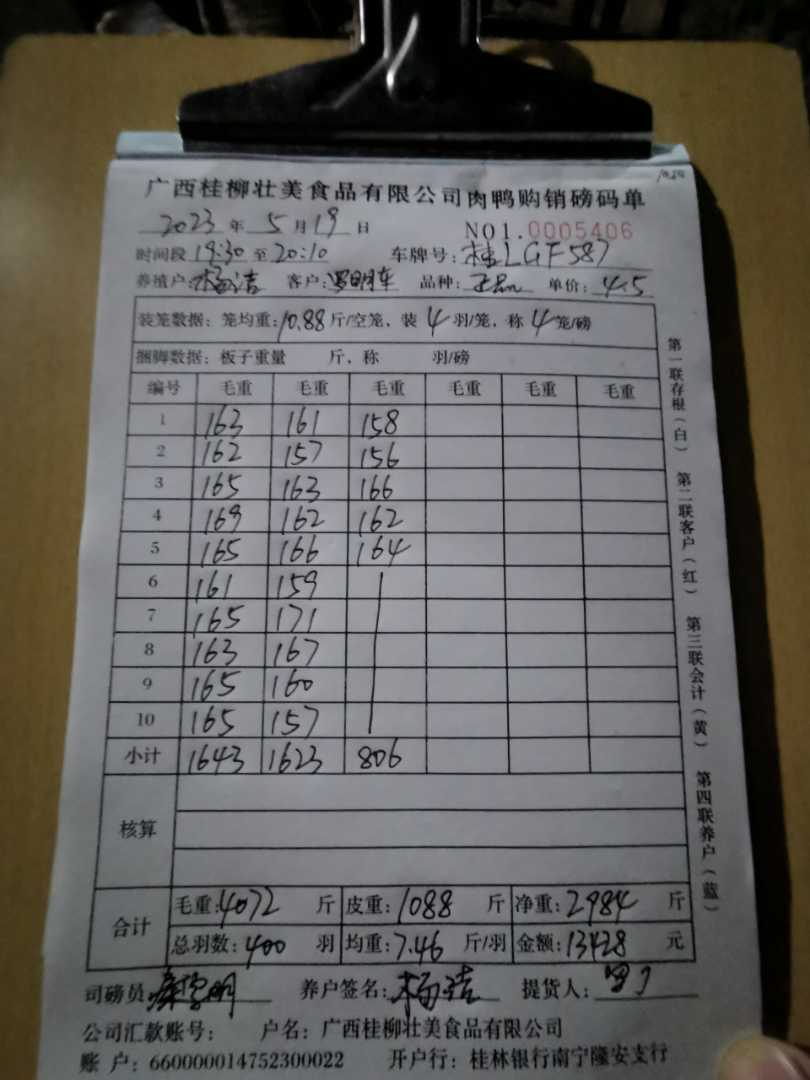 广西桂柳壮美食品有限公司肉鸭购销磅码单
2023 年 5 月 19 日 NO1.0005406
时间段 19:30 至 20:10 车牌号: 桂LGF587
养殖户: 杨洁 客户: 罗明车 品种: 正品 单价: 4.5
装笼数据: 笼均重: 10.88 斤/空笼, 装 4 羽/笼, 称 4 笼/磅
捆脚数据: 板子重量 斤, 称 羽/磅
编号 毛重 毛重 毛重 毛重 毛重 毛重
1 163 161 158
2 162 157 156
3 165 163 166
4 169 162 162
5 165 166 164
6 161 159
7 165 171
8 163 167
9 165 160
10 165 157
小计 1643 1623 806
核算
合计 毛重: 4072 斤 皮重: 1088 斤 净重: 2984 斤
总羽数: 400 羽 均重: 7.46 斤/羽 金额: 13428 元
司磅员: 养户签名: 杨洁 提货人:
公司汇款账号: 户名: 广西桂柳壮美食品有限公司
账 户: 660000014752300022 开户行: 桂林银行南宁隆安支行
第一联存根(白) 第二联客户(红) 第三联会计(黄) 第四联养户(蓝)